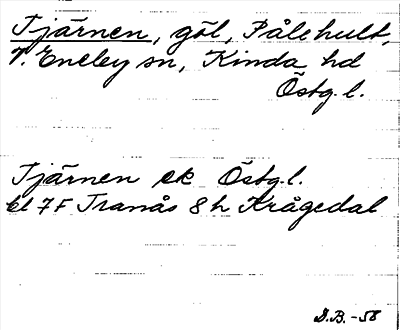 Tjärnen, göl, Pålehult,
V. Eneby sn, Kinda hd
Östg. l.
Tjärnen ek Östg. l.
bl 7F Tranås 8h Krågedal
D.B. -58